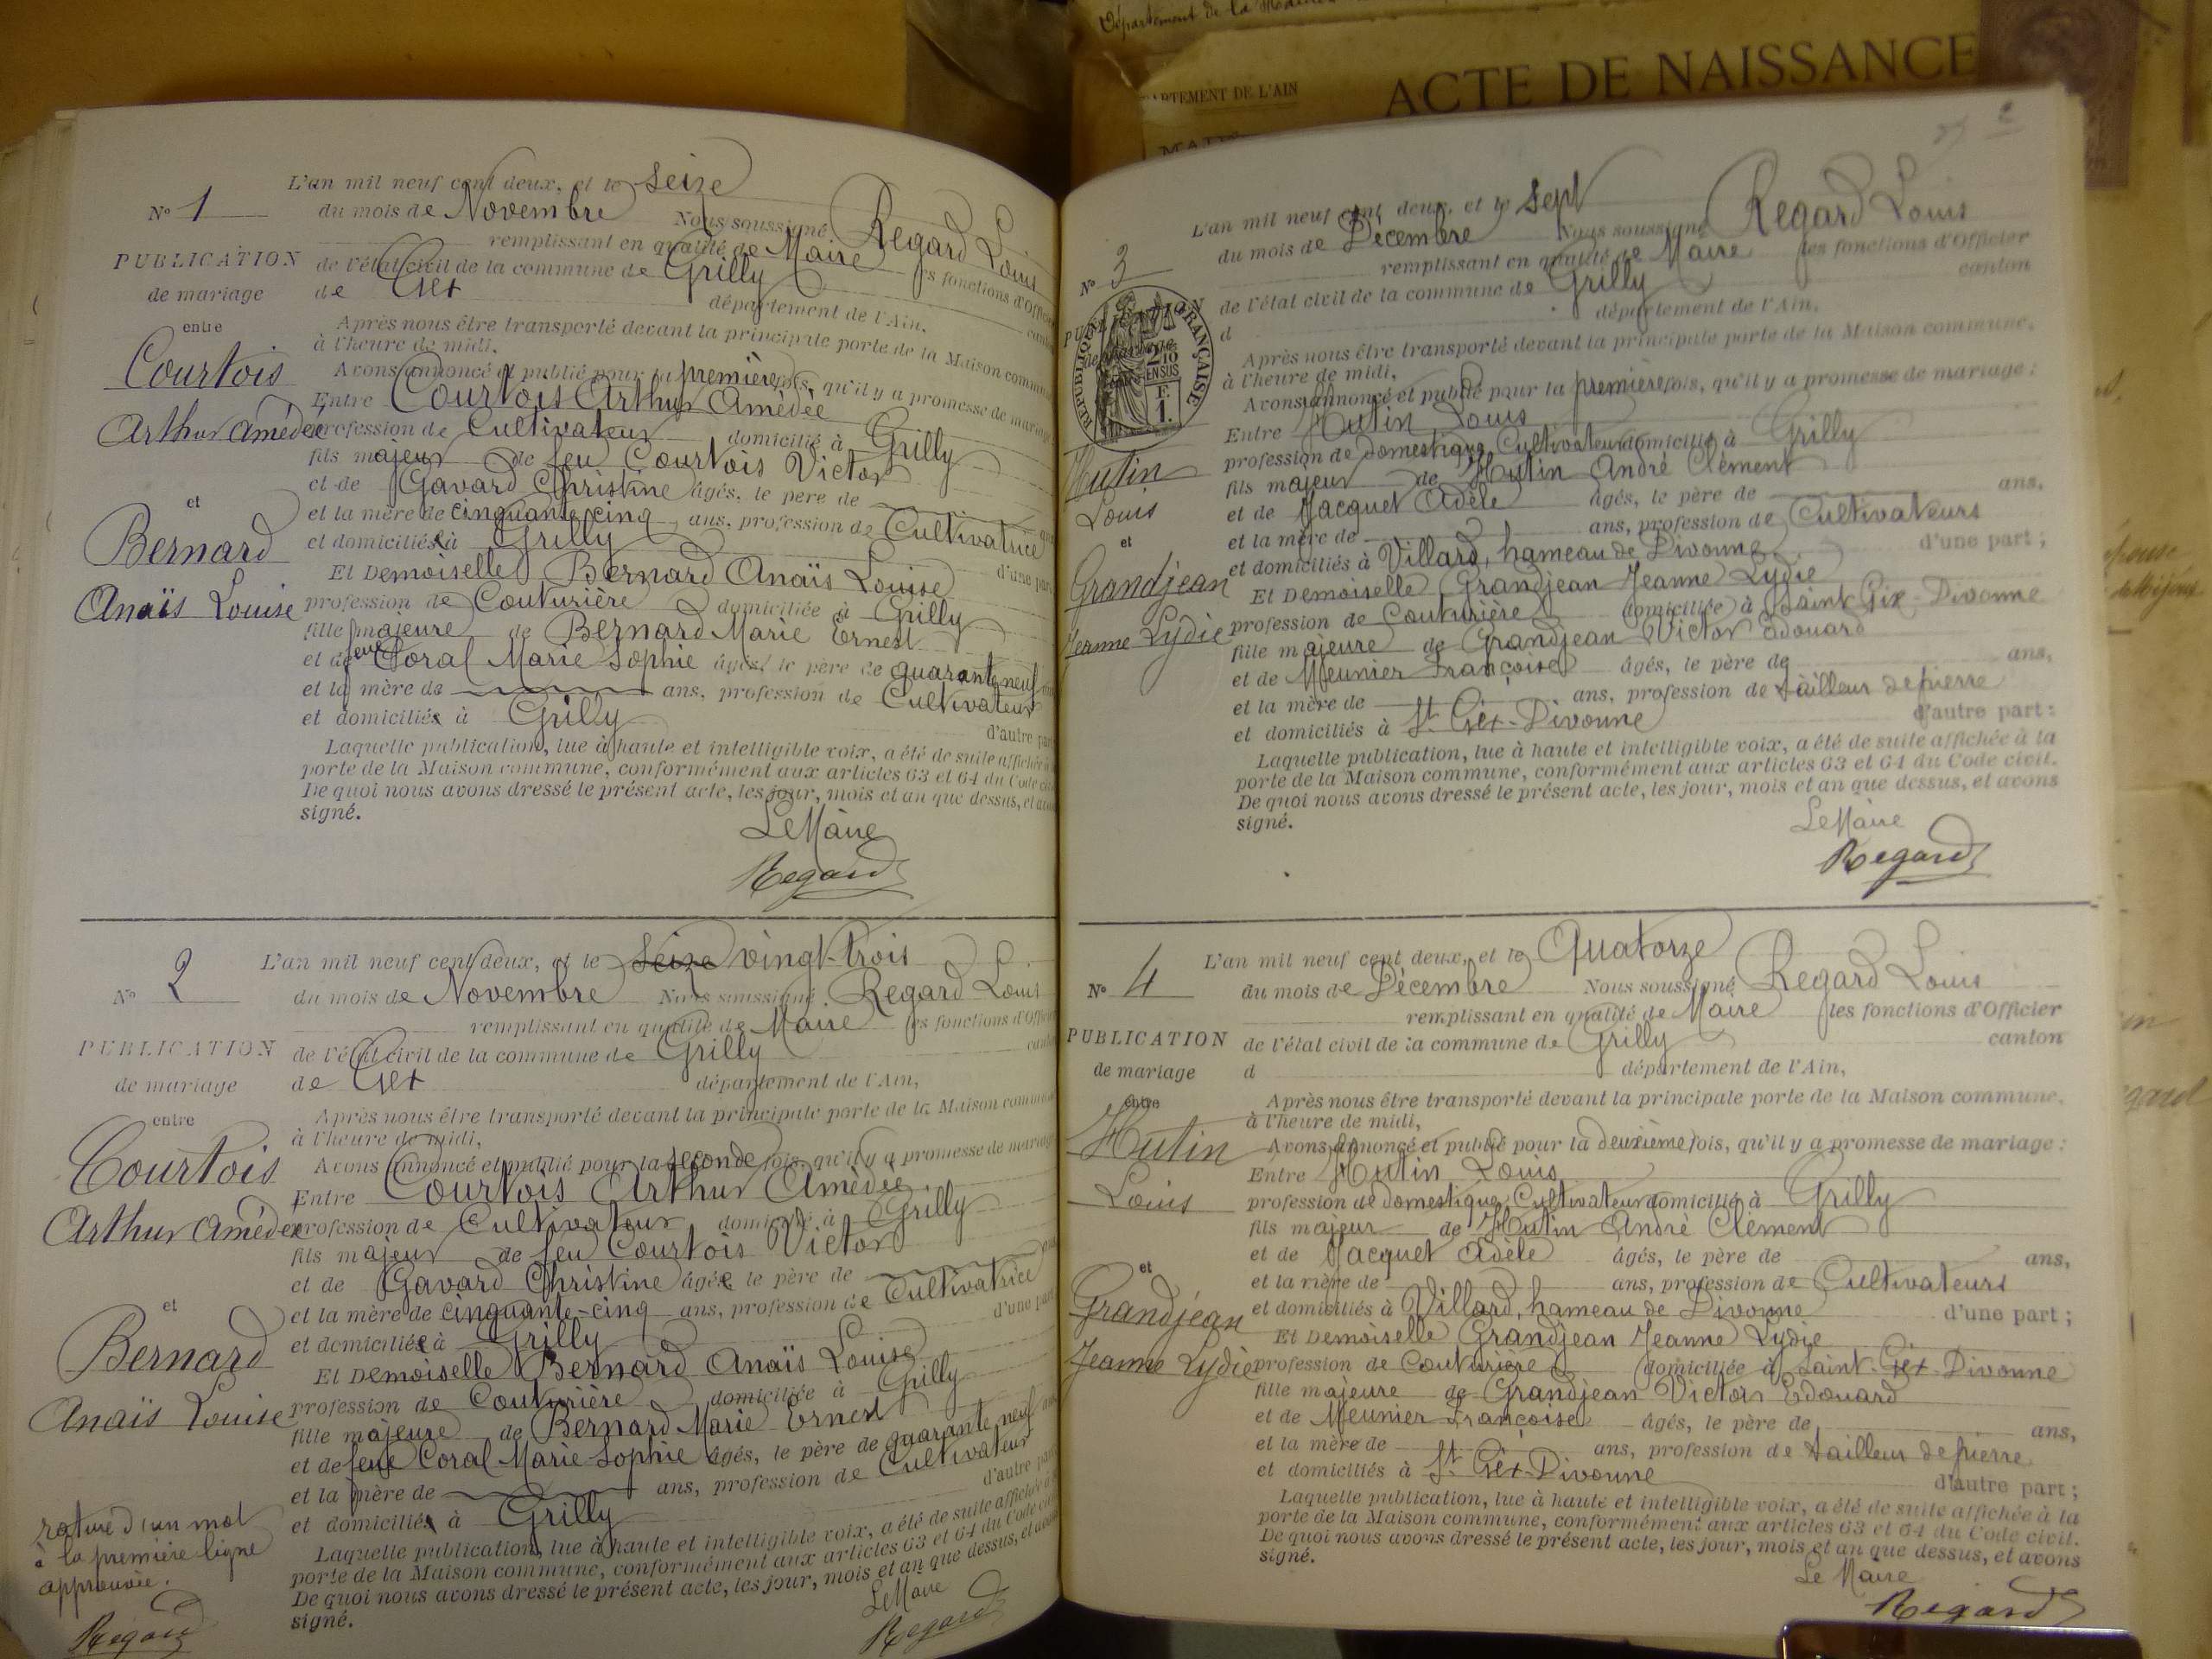 Département de la
PARTEMENT DE L'AIN
ACTE DE NAISSANCE
N° 1
PUBLICATION
de mariage
entre
Courtois
Arthur Amédée
et
Bernard
Anaïs Louise
L'an mil neuf cent deux, et le seize
du mois de Novembre Nous soussigné Regard Louis
remplissant en qualité de Maire les fonctions d'Officier
de l'état civil de la commune de Grilly canton
de Gex département de l'Ain,
Après nous être transporté devant la principale porte de la Maison commune
à l'heure de midi,
Avons annoncé et publié pour la première fois, qu'il y a promesse de mariage
Entre Courtois Arthur Amédée
profession de Cultivateur domicilié à Grilly
fils majeur de feu Courtois Victor
et de Gavard Christine âgés, le père de
et la mère de cinquante-cinq ans, profession de Cultivatrice
et domiciliée à Grilly d'une part
Et Demoiselle Bernard Anaïs Louise
profession de Couturière domiciliée à Grilly
fille majeure de Bernard Marie Ernest
et de feue Coral Marie Sophie âgés, le père de quarante neuf
et la mère de ans, profession de Cultivateur
et domicilié à Grilly d'autre part
Laquelle publication, lue à haute et intelligible voix, a été de suite affichée à
porte de la Maison commune, conformément aux articles 63 et 64 du Code
De quoi nous avons dressé le présent acte, les jour, mois et an que dessus, et avons
signé.
Le Maire
Regard
N° 2
PUBLICATION
de mariage
entre
Courtois
Arthur Amédée
et
Bernard
Anaïs Louise
rature d'un mot
à la première ligne
approuvée.
Regard
L'an mil neuf cent deux, et le seize vingt-trois
du mois de Novembre Nous soussigné Regard Louis
remplissant en qualité de Maire les fonctions d'Officier
de l'état civil de la commune de Grilly canton
de Gex département de l'Ain,
Après nous être transporté devant la principale porte de la Maison commune
à l'heure de midi,
Avons annoncé et publié pour la seconde fois, qu'il y a promesse de mariage
Entre Courtois Arthur Amédée
profession de Cultivateur domicilié à Grilly
fils majeur de feu Courtois Victor
et de Gavard Christine âgée le père de
et la mère de cinquante-cinq ans, profession de Cultivatrice
et domiciliée à Grilly d'une part
Et Demoiselle Bernard Anaïs Louise
profession de Couturière domiciliée à Grilly
fille majeure de Bernard Marie Ernest
et de feue Coral Marie-Sophie âgés, le père de quarante neuf
et la mère de ans, profession de Cultivateur
et domicilié à Grilly d'autre part
Laquelle publication, lue à haute et intelligible voix, a été de suite affichée à
porte de la Maison commune, conformément aux articles 63 et 64 du Code
De quoi nous avons dressé le présent acte, les jour, mois et an que dessus, et avons
signé.
Le Maire
Regard
N° 3
PUBLICATION
de mariage
RÉPUBLIQUE FRANÇAISE
2/10 EN SUS
F. 1.
Hutin
Louis
et
Grandjean
Jeanne Lydie
L'an mil neuf cent deux, et le sept
du mois de Décembre Nous soussigné Regard Louis
remplissant en qualité de Maire les fonctions d'Officier
de l'état civil de la commune de Grilly canton
d département de l'Ain,
Après nous être transporté devant la principale porte de la Maison commune,
à l'heure de midi,
Avons annoncé et publié pour la première fois, qu'il y a promesse de mariage :
Entre Hutin Louis
profession de domestique Cultivateur domicilié à Grilly
fils majeur de Hutin André Clément
et de Jacquet Adèle âgés, le père de ans,
et la mère de ans, profession de Cultivateurs
et domiciliés à Villard, hameau de Divonne d'une part ;
Et Demoiselle Grandjean Jeanne Lydie
profession de Couturière domiciliée à Saint Gix-Divonne
fille majeure de Grandjean Victor Edouard
et de Meunier Françoise âgés, le père de ans,
et la mère de ans, profession de tailleur de pierre
et domiciliés à St Gex-Divonne d'autre part :
Laquelle publication, lue à haute et intelligible voix, a été de suite affichée à la
porte de la Maison commune, conformément aux articles 63 et 64 du Code civil.
De quoi nous avons dressé le présent acte, les jour, mois et an que dessus, et avons
signé.
Le Maire
Regard
N° 4
PUBLICATION
de mariage
entre
Hutin
Louis
et
Grandjean
Jeanne Lydie
L'an mil neuf cent deux, et le Quatorze
du mois de Décembre Nous soussigné Regard Louis
remplissant en qualité de Maire les fonctions d'Officier
de l'état civil de la commune de Grilly canton
d département de l'Ain,
Après nous être transporté devant la principale porte de la Maison commune,
à l'heure de midi,
Avons annoncé et publié pour la deuxième fois, qu'il y a promesse de mariage :
Entre Hutin Louis
profession de domestique Cultivateur domicilié à Grilly
fils majeur de Hutin André Clément
et de Jacquet Adèle âgés, le père de ans,
et la mère de ans, profession de Cultivateurs
et domiciliés à Villard, hameau de Divonne d'une part ;
Et Demoiselle Grandjean Jeanne Lydie
profession de Couturière domiciliée à Saint-Gex-Divonne
fille majeure de Grandjean Victor Edouard
et de Meunier Françoise âgés, le père de ans,
et la mère de ans, profession de tailleur de pierre
et domiciliés à St Gex-Divonne d'autre part ;
Laquelle publication, lue à haute et intelligible voix, a été de suite affichée à la
porte de la Maison commune, conformément aux articles 63 et 64 du Code civil.
De quoi nous avons dressé le présent acte, les jour, mois et an que dessus, et avons
signé.
Le Maire
Regard